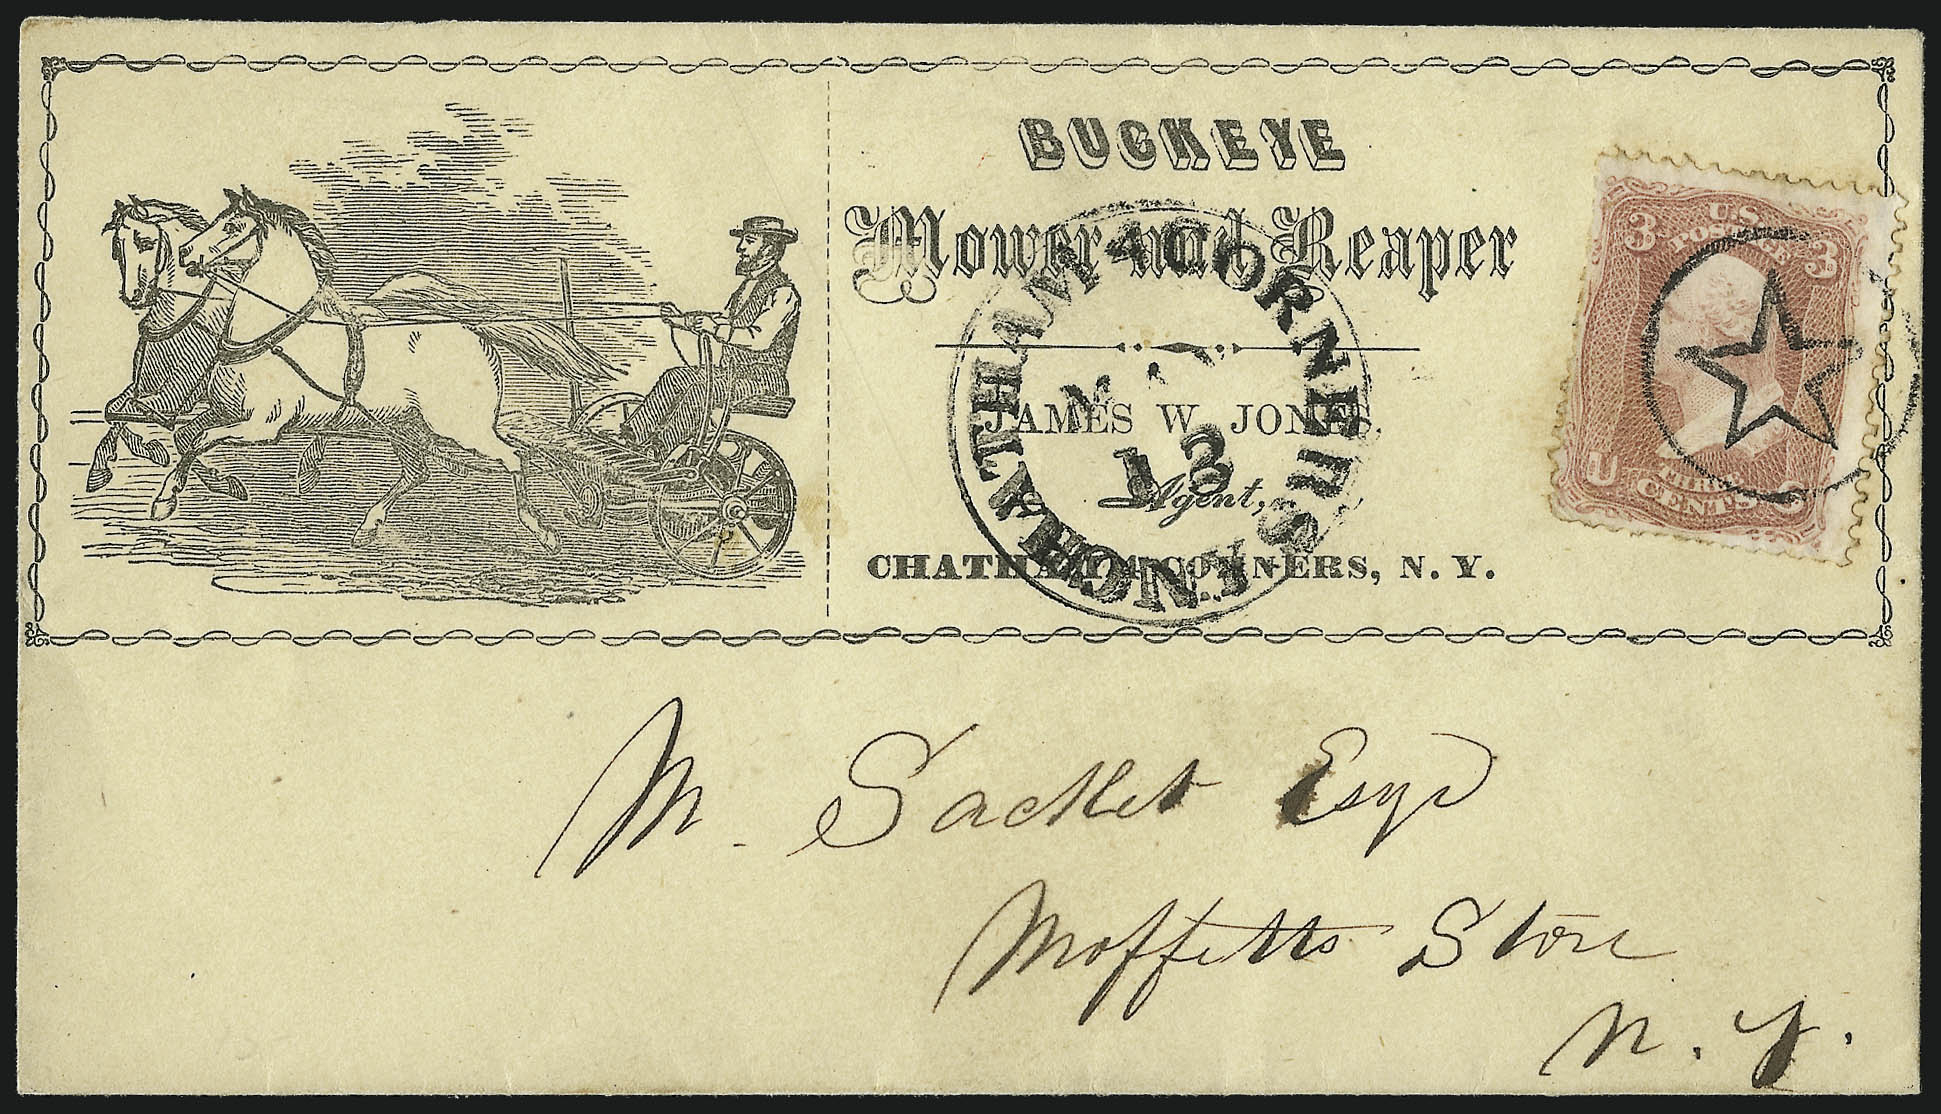 BUCKEYE
Mower and Reaper
JAMES W. JONES,
Agent,
CHATHAM 4 CORNERS, N. Y.
CHATHAM 4 CORNERS
MAY
13
U.S.
POSTAGE
3 3
U S
THREE
CENTS
M. Sacket Esqr
Moffetts Store
N. Y.